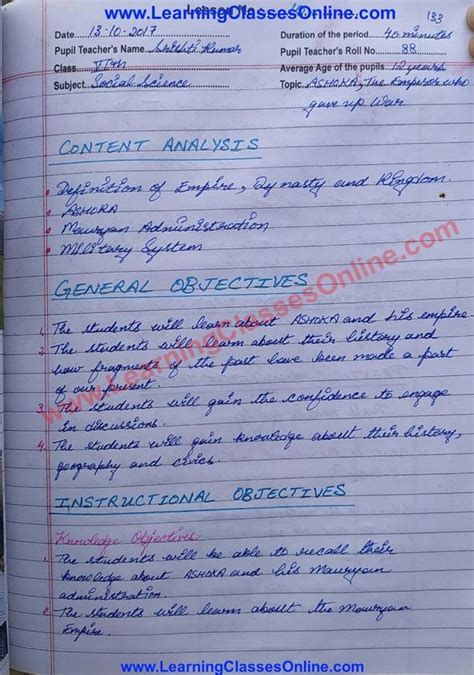 www.LearningClassesOnline.com
133
Date 13-10-2017 Duration of the period 40 minutes
Pupil Teacher's Name Pupil Teacher's Roll No 88
Class VIth Average Age of the pupils 12 years
Subject Social Science Topic ASHOKA, The Emperor who
gave up War
CONTENT ANALYSIS
• Definition of Empire, Dynasty and Kingdom.
• ASHOKA
• Mauryan Administration
• Military System
GENERAL OBJECTIVES
1. The students will learn about ASHOKA and his empire
2. The students will learn about their history and
how fragments of the past have been made a part
of our present.
3. The students will gain the confidence to engage
in discussions.
4. The students will gain knowledge about their history,
geography and civics.
www.LearningClassesOnline.com
INSTRUCTIONAL OBJECTIVES
Knowledge Objectives
1. The students will be able to recall their
knowledge about ASHOKA and his Mauryan
administration.
2. The students will learn about the Mauryan
Empire.
www.LearningClassesOnline.com